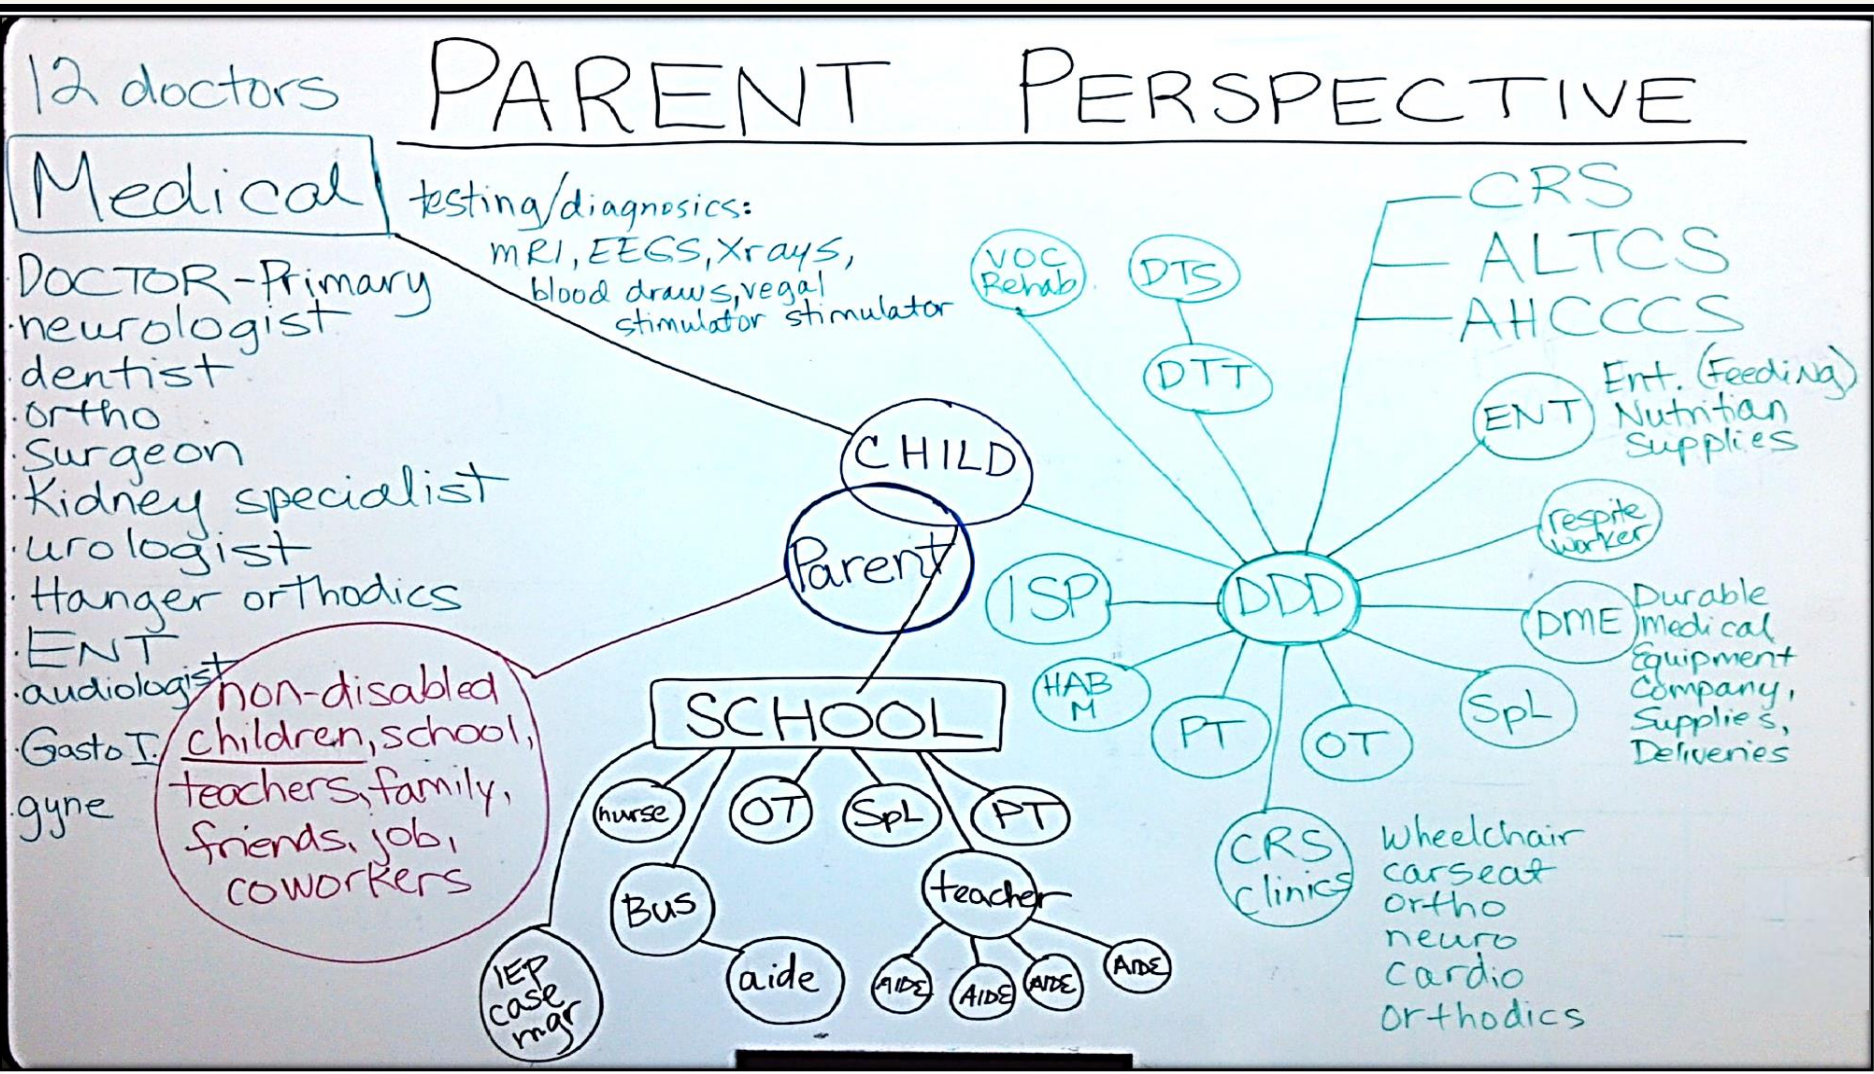 12 doctors
PARENT PERSPECTIVE
Medical
DOCTOR-Primary
neurologist
dentist
ortho
Surgeon
Kidney specialist
urologist
Hanger orthodics
ENT
audiologist
Gasto I.
gyne
testing/diagnosics:
MRI, EEGS, Xrays,
blood draws, vegal
stimulator stimulator
CHILD
Parent
non-disabled
children, school,
teachers, family,
friends, job,
coworkers
SCHOOL
nurse
OT
SpL
PT
Bus
aide
teacher
AIDE
AIDE
AIDE
AIDE
IEP
case
mgr
VOC
Rehab
DTS
DTT
CRS
ALTCS
AHCCCS
ENT
Ent. (Feeding)
Nutritian
Supplies
respite
worker
DDD
ISP
DME
Durable
medical
Equipment
Company,
Supplies,
Deliveries
HAB
M
PT
OT
SpL
CRS
clinics
wheelchair
carseat
ortho
neuro
cardio
orthodics